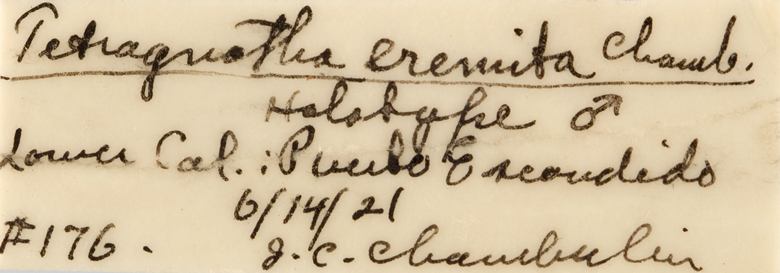 Tetragnatha eremita Chamb.
Holotype ♂
Lower Cal.: Puerto Escondido
6/14/21
#176. J. C. Chamberlin